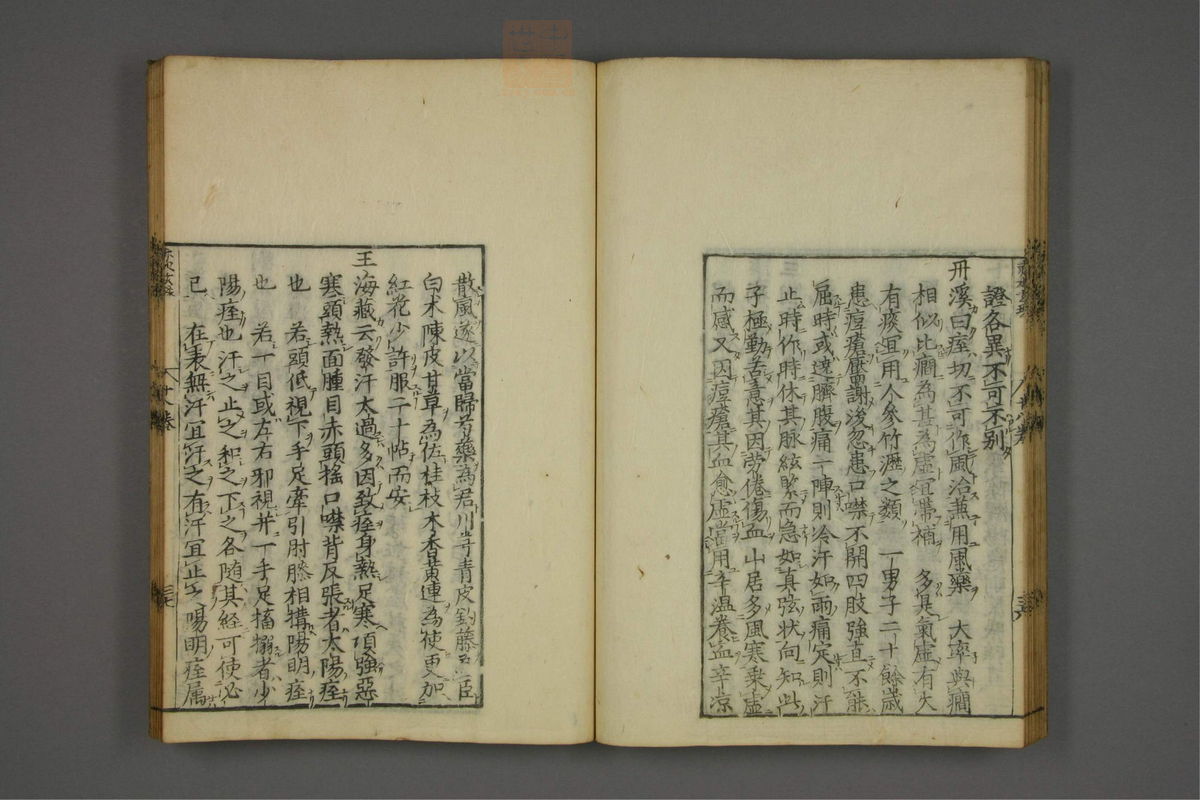 證各異不可不别
丹溪曰痓切不可作風治兼用風藥　大率與癇
相似比癇為甚為虛宜帶補　多是氣虛有火
有痰宜用人參竹瀝之類　一男子二十餘歲
患痘瘡靨謝後忽患口噤不開四肢強直不能
屈時或遶臍腹痛一陣則冷汗如雨痛定則汗
止時作時休其脉絃緊而急如真弦状向知此
子極勤苦意其因勞倦傷血山居多風寒乗虛
而感又因痘瘡其血愈虛當用辛温養血辛凉
散風遂以當歸芍藥為君川芎青皮鈎藤為臣
白术陳皮甘草為佐桂枝木香黄連為使更加
紅花少許服二十帖而安
王海藏云發汗太過多因致痓身熱足寒項強惡
寒頭熱面腫目赤頭搖口噤背反張者太陽痓
也　若頭低視下手足牽引肘膝相搆陽明痓
也　若一目或左右邪視并一手足搐搦者少
陽痓也汗之止之和之下之各随其経可使必
已　在表無汗宜汗之有汗宜止之陽明痓属